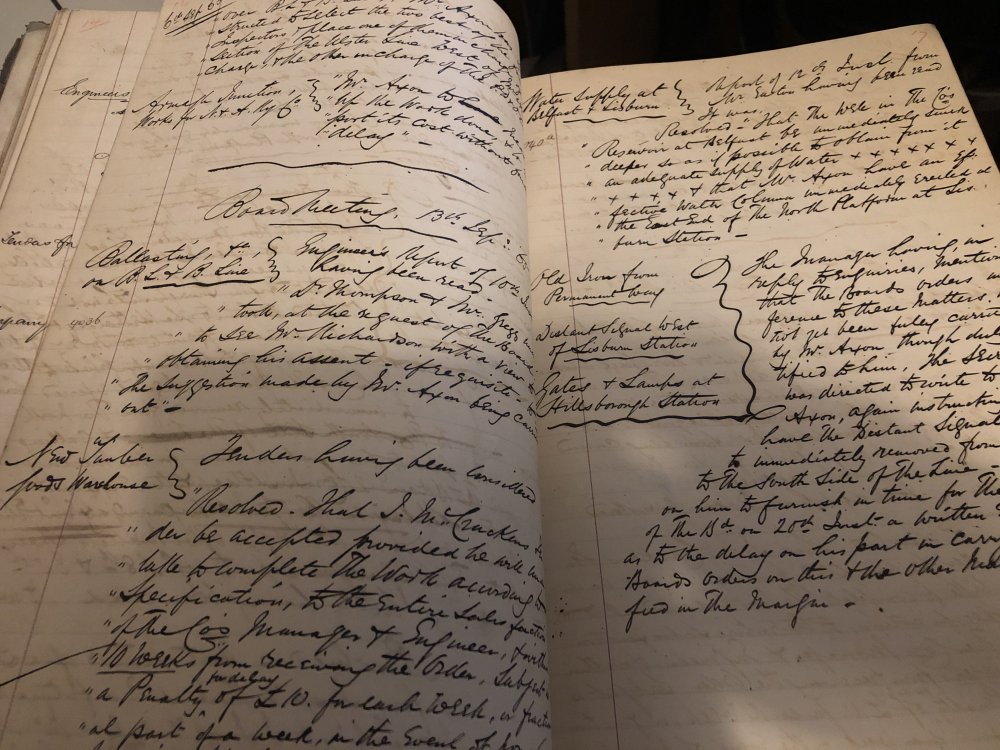 6th Sep 69
over B
structed to select the two best
Inspectors & place one of them in charge
Section of the Ulster Line West of
charge & the other in charge of the
Engineers
Armagh Junction,
Works for N. & A. Ry Co
"Mr. Axon to
"of the Work done, &
"port its cost without
"delay" -
Board Meeting. 13th Sep
Tenders for
Ballasting, &c,
on B. L. & B. Line
Engineer's Report of 10th Inst
having been read -
"Dr Thompson & Mr. Gregg
"took, at the request of the Board
"to see Mr. Richardson with a view
"obtaining his assent if requisite to
"the suggestion made by Mr. Axon being carried
"out" -
New Timber
Goods Warehouse
Tenders having been considered
"Resolved - That J. McCracken's
"der be accepted provided he will
"take to complete the Work according to
"Specification, to the Entire Satisfaction
"of the Co's Manager & Engineer, & within
"10 Weeks from receiving the Order, Subject
for delay
"a Penalty of £10. for each Week, or fraction
"al part of a week, in the Event of
17
Water Supply at
Belfast & Lisburn
Report of 12th Inst. from
Mr. Easton having been read
It was
Resolved - "That the Well in the Co's
"Reservoir at Belfast be immediately sunk
"deeper so as if possible to obtain from it
"an adequate supply of Water x x x x x x x
" x x x x x that Mr. Axon have an Ef-
"fective Water Column immediately erected at
"the East End of the North Platform at Lis-
"burn Station -
Old Iron from
Permanent Way
Distant Signal West
of Lisburn Station
Gates & Lamps at
Hillsborough Station
The Manager having, in
reply to Enquiries, mentioned
that the Boards orders
ference to these matters
not yet been fully carried
by Mr. Axon though
tified to him, The
was directed to write to
Axon, again instructing
have the Distant Signal
to immediately removed from
to the South Side of the Line -
on him to furnish in time for the
of the Bd. on 20th Inst. a written
as to the delay on his part in
Boards orders on this & the other
fied in the Margin -